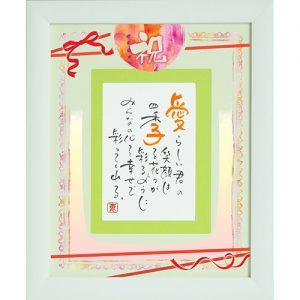 祝
愛らしい君の
笑顔は
四季を花々が
彩るように
みんなの心を幸せで
彩ってくれる。